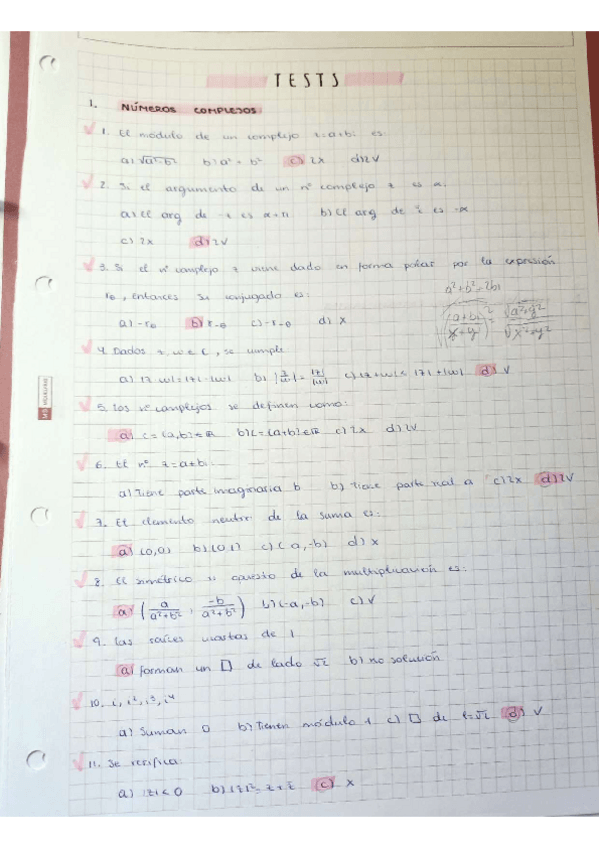 TESTS
1. NÚMEROS COMPLEJOS
1. El módulo de un complejo z=a+bi es:
a) √a²-b² b) a²+b² c) 2x d) 2V
2. Si el argumento de un nº complejo z es α:
a) el arg de -z es α+π b) el arg de z̄ es -α
c) 2x d) 2V
3. Si el nº complejo z viene dado en forma polar por la expresión
rθ, entonces su conjugado es:
a) -rθ b) r-θ c) -r-θ d) x
a²+b²+2bi
4. Dados z, w ∈ C, se cumple
a) |z·w|=|z|·|w| b) |z/w| = |z|/|w| c) |z+w|≤|z|+|w| d) V
5. Los nº complejos se definen como:
a) C=(a,b)∈ℝ b) C=(a+b)∈ℝ c) 2x d) 2V
6. El nº z=a+bi
a) Tiene parte imaginaria b b) tiene parte real a c) 2x d) 2V
7. El elemento neutro de la suma es:
a) (0,0) b) (0,1) c) (-a,-b) d) x
8. El simétrico u opuesto de la multiplicación es:
a) (a/a²+b², -b/a²+b²) b) (-a,-b) c) V
9. Las raíces cuartas de 1
a) forman un □ de lado √2 b) no solución
10. i, i², i³, i⁴
a) Suman 0 b) Tienen módulo 1 c) □ de l=√2 d) V
11. Se verifica:
a) |z|<0 b) |z|²=z+z̄ c) x